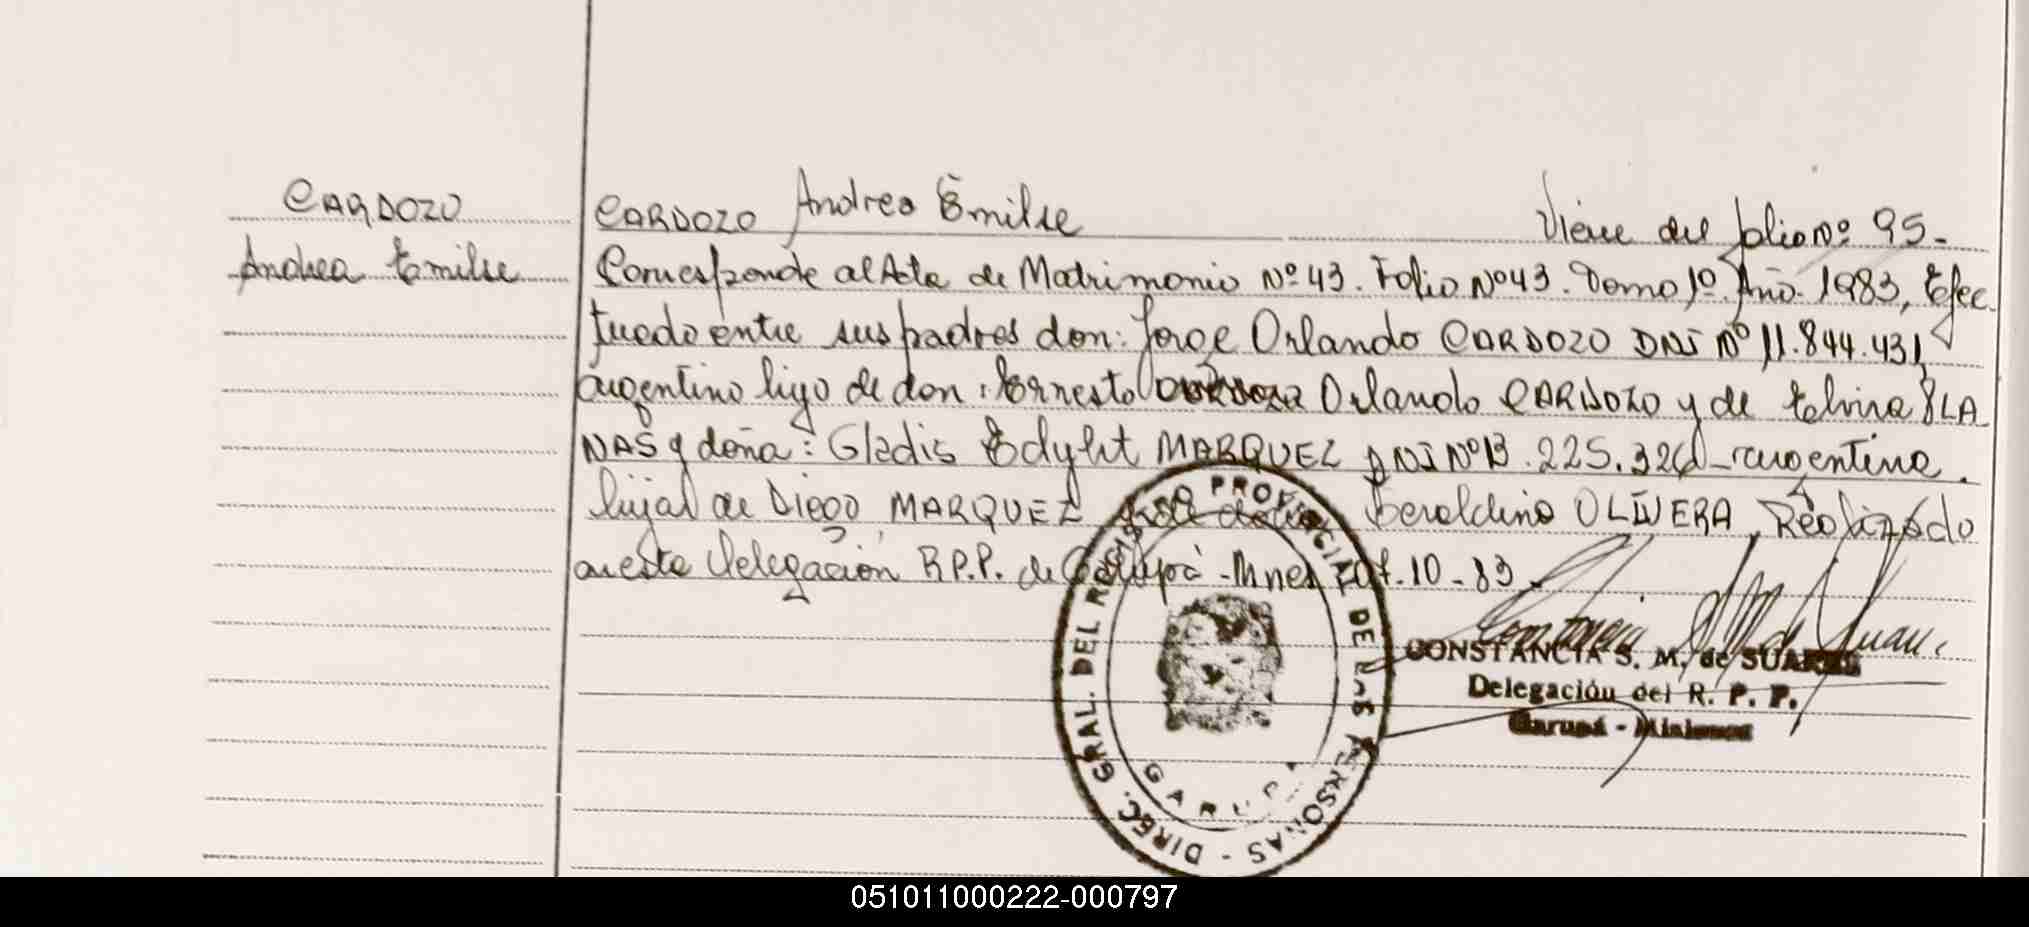 CARDOZO
Andrea Emilse
CARDOZO Andrea Emilse Viene del folio Nº 95.-
Corresponde al Acta de Matrimonio Nº 43. Folio Nº 43. Tomo 1º. Año 1983, Efec
tuado entre sus padres don: Jorge Orlando CARDOZO DNI Nº 11.844.431,
argentino hijo de don: Ernesto Orlando CARDOZO y de Etelvina LLA
NAS y doña: Gladis Edyht MARQUEZ DNI Nº 13.225.326 - argentina.
hija de Diego MARQUEZ y de doña Geraldina OLIVERA, Realizado
en esta Delegación R.P.P. de Garupá - Mnes 10 - 83 -
CONSTANCIA S. M. de SUAREZ
Delegación del R. P. P.
Garupá - Misiones
DIREC. GRAL. DEL REGISTRO PROVINCIAL DE LAS PERSONAS -
GARUPA
051011000222-000797